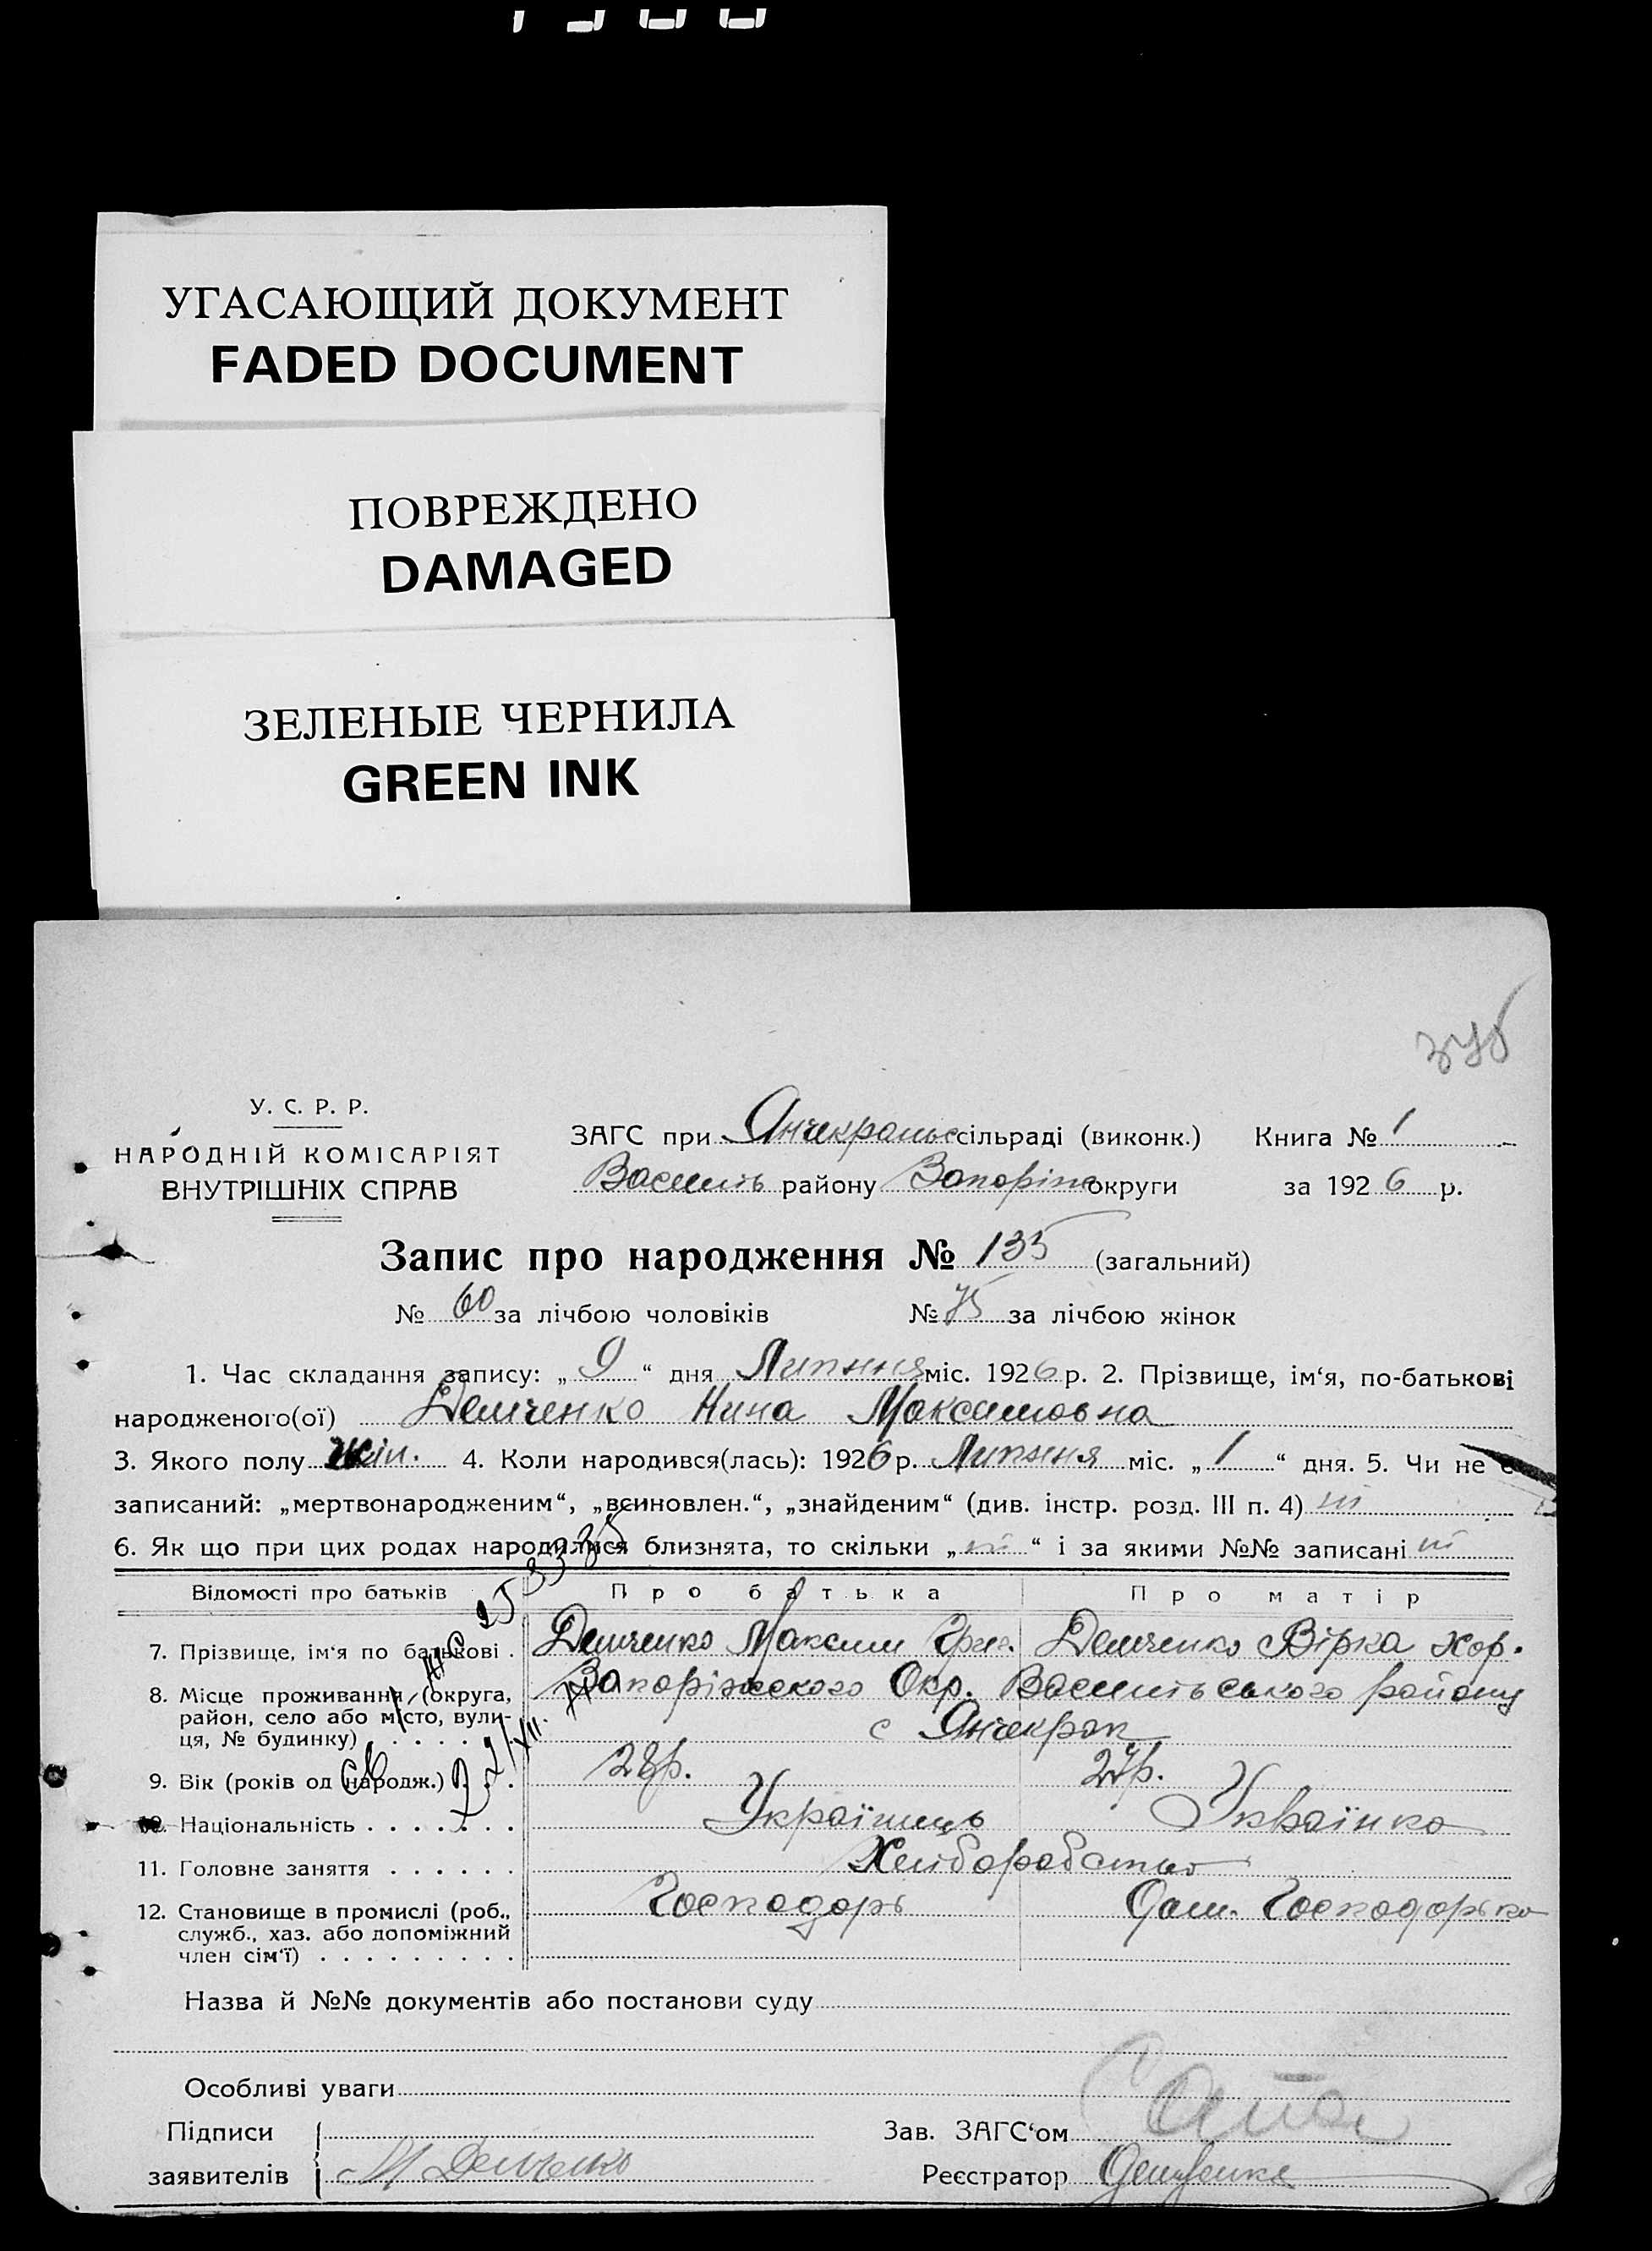 УГАСАЮЩИЙ ДОКУМЕНТ
FADED DOCUMENT
ПОВРЕЖДЕНО
DAMAGED
ЗЕЛЕНЫЕ ЧЕРНИЛА
GREEN INK
У. С. Р. Р.
НАРОДНІЙ КОМІСАРІЯТ
ВНУТРІШНІХ СПРАВ
ЗАГС при Янчекраньс сільраді (виконк.) Книга № 1
Василь району Запоріж округи за 1926 р.
Запис про народження № 135 (загальний)
№ 60 за лічбою чоловіків № 75 за лічбою жінок
1. Час складання запису: „ 9 “ дня Липння міс. 1926 р. 2. Прізвище, ім‘я, по-батькові
народженого(ої) Демченко Нина Максимовна
3. Якого полу жін. 4. Коли народився(лась): 1926 р. Липння міс. „ 1 “ дня. 5. Чи не є
записаний: „мертвонародженим“, „всиновлен.“, „знайденим“ (див. інстр. розд. III п. 4) ні
6. Як що при цих родах народилися близнята, то скільки „ ні “ і за якими №№ записані ні
Відомості про батьків Про батька Про матір
7. Прізвище, ім‘я по батькові . Демченко Максим Григ. Демченко Вірка Хор.
8. Місце проживання (округа, Запоріжского Окр. Васильського району
район, село або місто, вули-
ця, № будинку) . . . . . с Янчекрак
9. Вік (років од народж.) . . . 28р. 27р.
10. Національність . . . . . . . Українець Українка
11. Головне заняття . . . . . . Хліборобство
12. Становище в промислі (роб., Господорь Дом. Господорька
служб., хаз. або допоміжний
член сім‘ї) . . . . . . . . .
Назва й №№ документів або постанови суду
Особливі уваги
Підписи Зав. ЗАГС‘ом
заявителів М Демченко Реєстратор